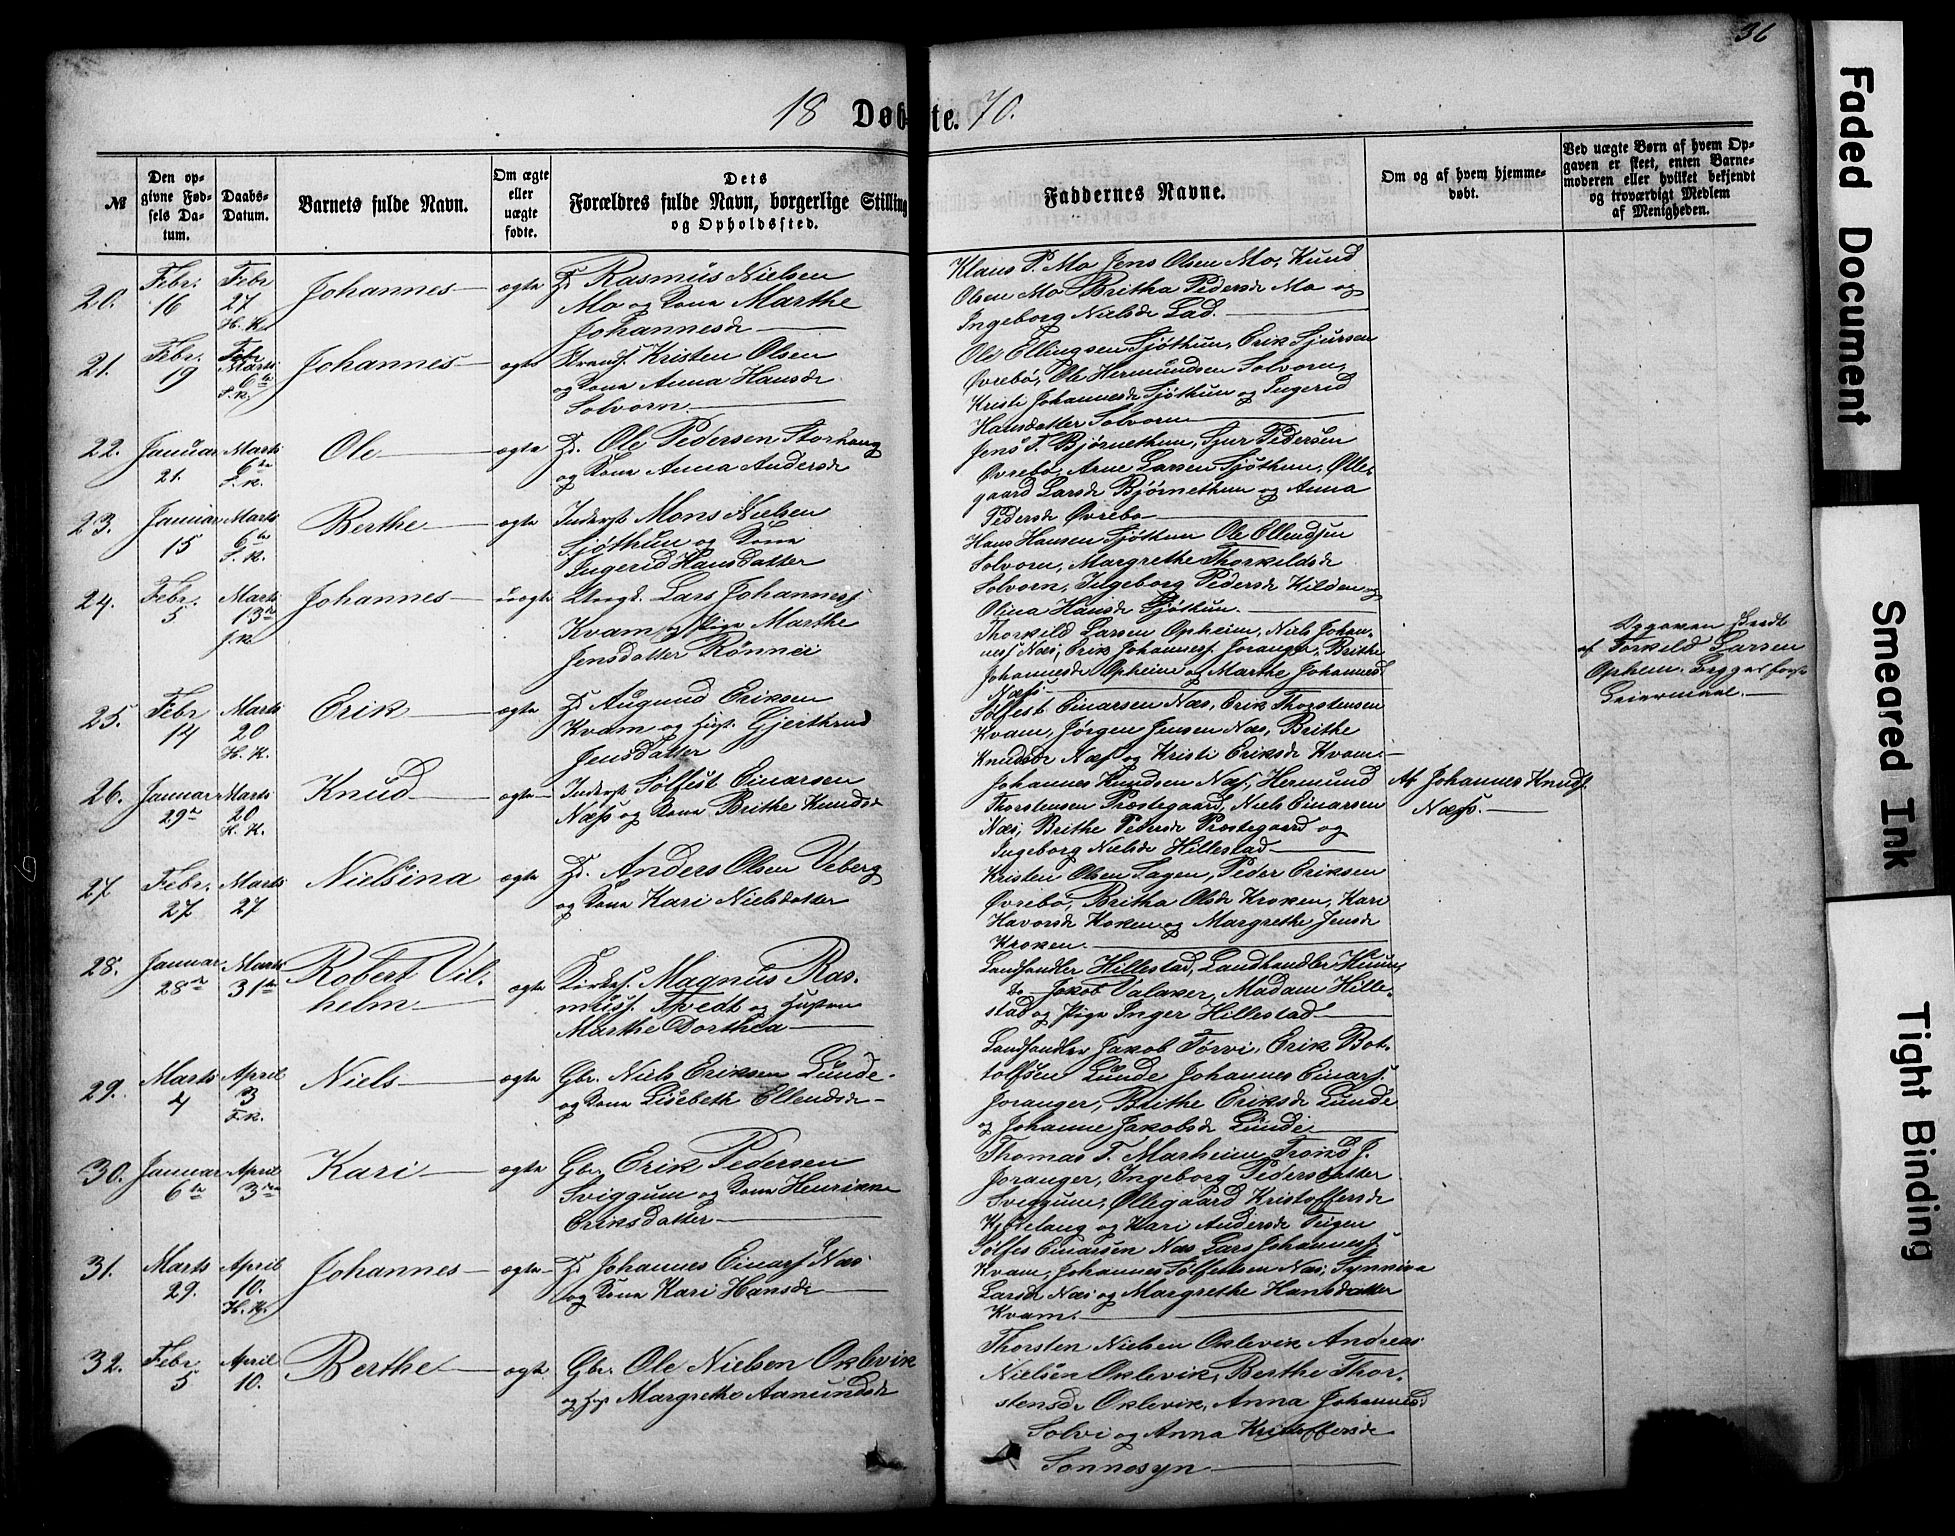 36
18 Døbte. 70.
№
Den opgivne Fødsels Datum.
Daabs-Datum.
Barnets fulde Navn.
Om ægte eller uægte fødte.
Dets Forældres fulde Navn, borgerlige Stilling og Opholdssted.
Faddernes Navne.
Om og af hvem hjemmedøbt.
Ved uægte Børn af hvem Opgaven er skeet, enten Barnemoderen eller hvilket bekjendt og troværdigt Medlem af Menigheden.
20. Febr. 16 Febr 27 H. K. Johannes ægte Rasmus Nielsen
Mo og Kona Marthe
Johannesdr
Klaus P. Mo Jens Olsen Mo, Knud
Olsen Mo Britha Pedersdr Mo og
Ingeborg Nielsdr Lad.
21. Febr. 19 Marts 6te S. K. Johannes ægte Strands. Kristen Olsen
og Kona Anna Hansdr
Solvorn
Ole Ellingsen Sjøthun, Erik Sjursen
Øvrebø, Ole Hermundsen Solvorn,
Kristi Johannesdr Sjøthun og Ingerid
Hansdatter Solvorn
22. Januar 21. Marts 6te S. K. Ole ægte Gbr. Ole Pedersen Storhaug
og Kona Anna Andersdr
Jens T. Bjørnethun, Sjur Pedersen
Øvrebø, Arne Larsen Sjøthun,Ølle-
gaard Larsdr Bjørnethun og Anna
Pedersdr Øvrebø
23. Januar 15 Marts 6te S. K. Berthe ægte Inderst Mons Nielsen
Sjøthun og Kona
Ingerid Hansdatter
Hans Hansen Sjøthun Ole Ellendsen
Solvorn, Margrethe Thorkildsdr
Solvorn, Ingeborg Pedersdr Kilden og
Olina Hansdr Sjøthun.
24. Febr. 5 Marts 13de J. K. Johannes uægte Ungk. Lars Johannes.
Kvam og Pige Marthe
Jensdatter Rønnei
Thorkild Larsen Opheim, Niels Johan-
nes. Næs, Erik Johannes. Joranger, Brithe
Johannesdr Opheim og Marthe Johannesd
Næss
Opgaven skeedt
af Torkild Larsen
Ophem. Begges første
Leiermaal.
25. Febr 14 Marts 20 H. K. Erik ægte Augund Eriksen
Kvam og Hust. Gjerthrud
Jensdatter
Sølfest Einarsen Næs, Erik Thorstensen
Kvam, Jørgen Jensen Næs, Brithe
Knudsdr Næs og Kristi Eriksdr Kvam
26. Januar 29de Marts 20 H. K. Knud ægte Inderst Sølfest Einarsen
Næss og Kona Brithe Knudsdr
Johannes Knudsen Næs, Hermund
Thorstensen Præstegaard, Niels Einarsen
Næs, Brithe Pedersdr Præstegaard og
Ingeborg Nielsdr Hillestad
Af Johannes Knuds.
Næss.
27. Febr. 27 Marts 27 Nielsina ægte Anders Olsen Veberg
og Kona Kari Nielsdatter
Kristen Olsen Lagen, Peder Eriksen
Øvrebø, Britha Olsdr Kroken, Kari
Havorsdr Kroken og Margrethe Jensdr
Kroken.
28. Januar 28de Marts 31te Robert Vil-
helm ægte Kirkes. Magnus Ras-
muss. Tvedt og Hustru
Marthe Dorthea
Landhandler Hillestad, Landhandler
Do Jakob Valaker, Madam Hille-
stad og Pige Inger Hillestad
29. Marts 4 April 3 F. K. Niels ægte Gbr. Niels Eriksen Lunde
og Kona Lisebeth Ellendsdr
Landhandler Jakob Tørvi, Erik Bot-
tolfsen Lunde Johannes Einars.
Joranger, Brithe Eriksdr Lunde
og Johanne Jakobsdr Lunde
30. Januar 6te April 3die Kari ægte Gbr. Erik Pedersen
Sviggum og Kona Henrikke
Eriksdatter
Thomas T. Marheim, Trond J.
Joranger, Ingeborg Pedersdatter
Sviggum, Øllegaard Kristoffersdr
Kjødelaug og Kari Andersdr Teigen
31. Marts 29. April 10. H. K. Johannes ægte Johannes Einars. Næs
og Kona Kari Hansdr
Sølfes Einarsen Næs Lars Johannes.
Kvam, Johannes Sølfestsen Næs, Synneva
Larsdr Næs og Margrethe Hansdatter
Kvam.
32. Febr. 5 April 10. Berthe ægte Gbr. Ole Nielsen Oklevik
og Hus Margrethe Aamundsdr
Thorsten Nielsen Oklevik Andreas
Nielsen Oklevik, Berthe Thor-
stensdr Oklevik, Anna Johannesd
Solvi og Anna Kristoffersdr
Sønnesyn
Faded Document
Smeared Ink
Tight Binding